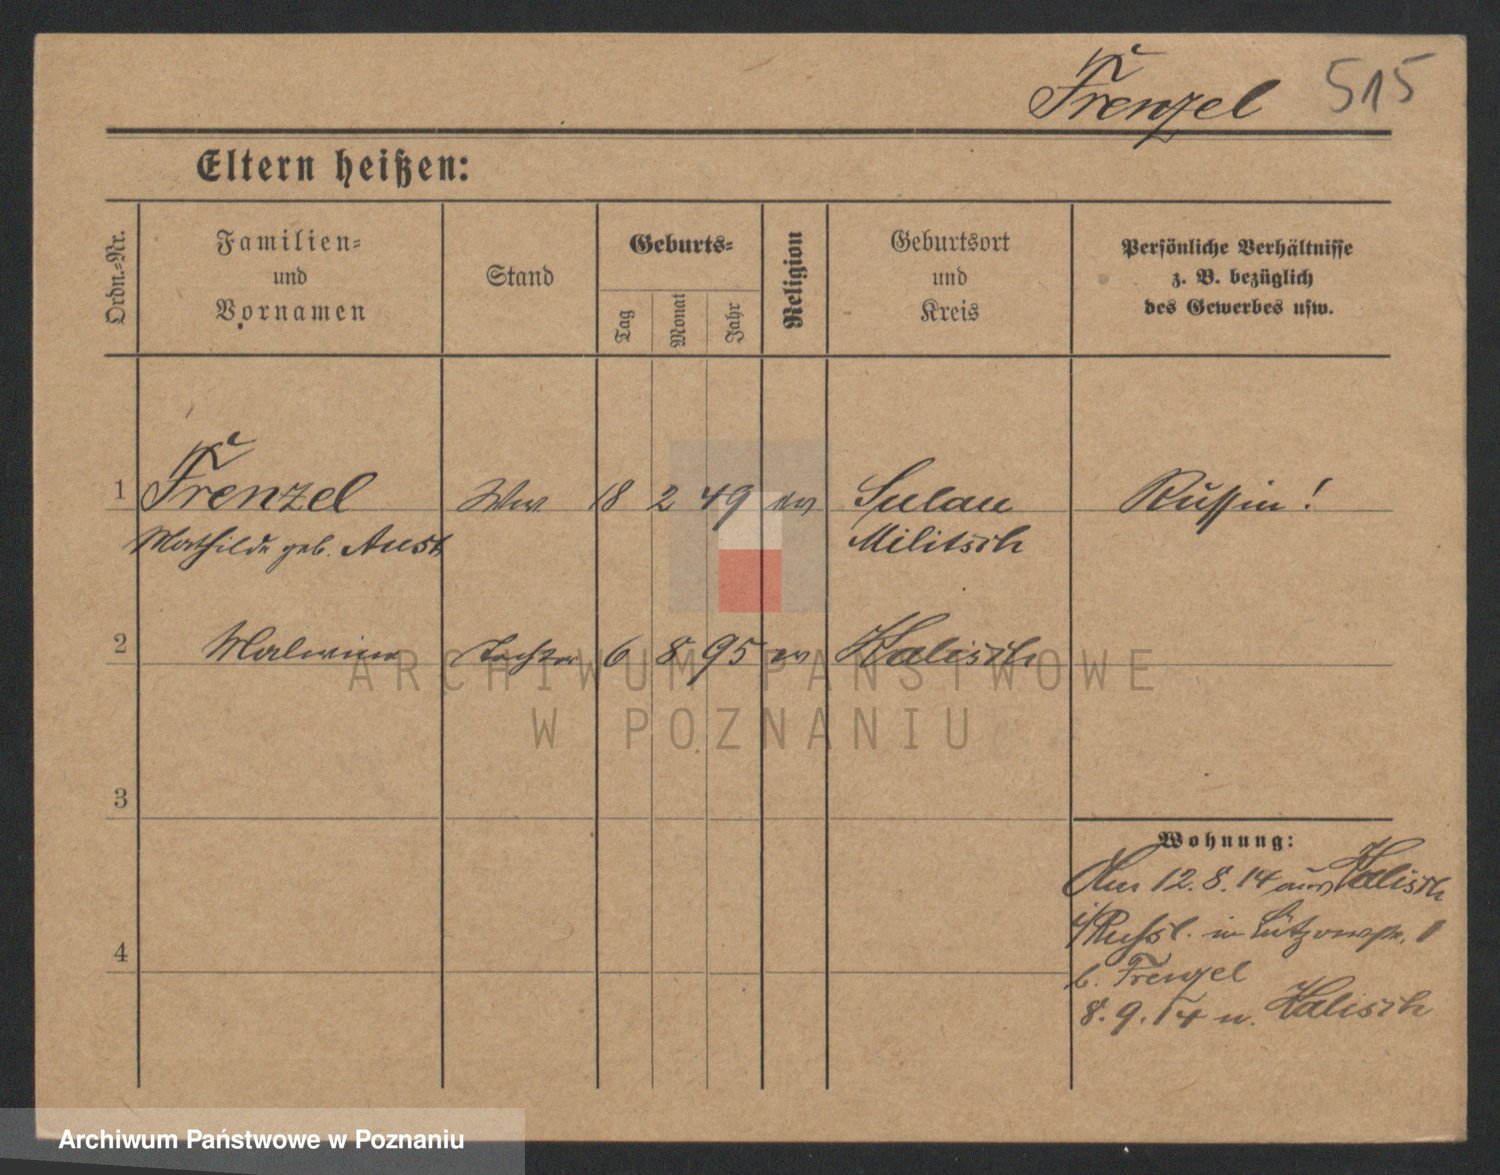 Frenzel 515
Eltern heißen:
Ordn.-Nr.
Familien-
und
Vornamen
Stand
Geburts-
Tag
Monat
Jahr
Religion
Geburtsort
und
Kreis
Persönliche Verhältnisse
z. B. bezüglich
des Gewerbes usw.
1 Frenzel Wwe 18 2 49 ev Sulau Russin!
Mathilde geb. Aust Militsch
2 Malwine Tochter 6 8 95 ev Kalisch
ARCHIWUM PAŃSTWOWE
W POZNANIU
3
Wohnung:
Am 12. 8. 14 aus Kalisch
i/Russl. in Lützowstr. 1
4
b. Frenzel
8. 9. 14 n. Kalisch
Archiwum Państwowe w Poznaniu